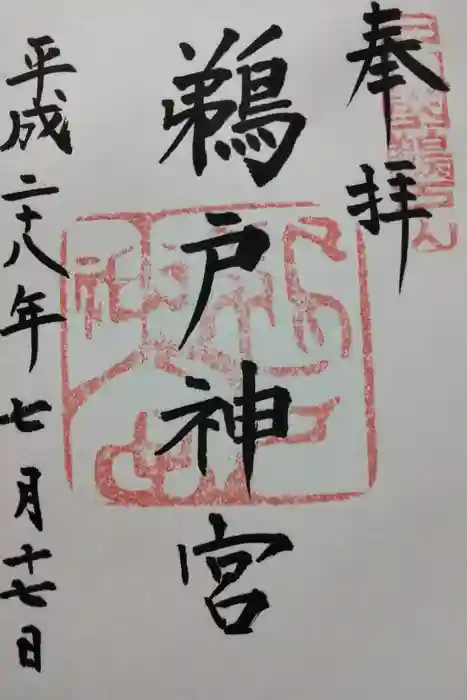 奉拝
鵜戸神宮
平成二十八年七月十七日